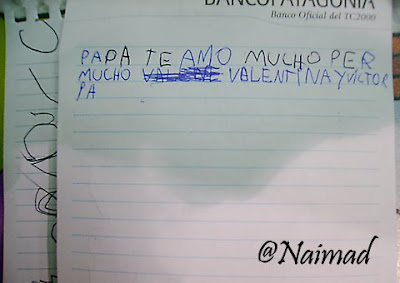 BANCO PATAGONIA
Banco Oficial del TC2000
PAPA TE AMO MUCHO PER
MUCHO VALENTINA Y VICTOR
PA
@Naimad